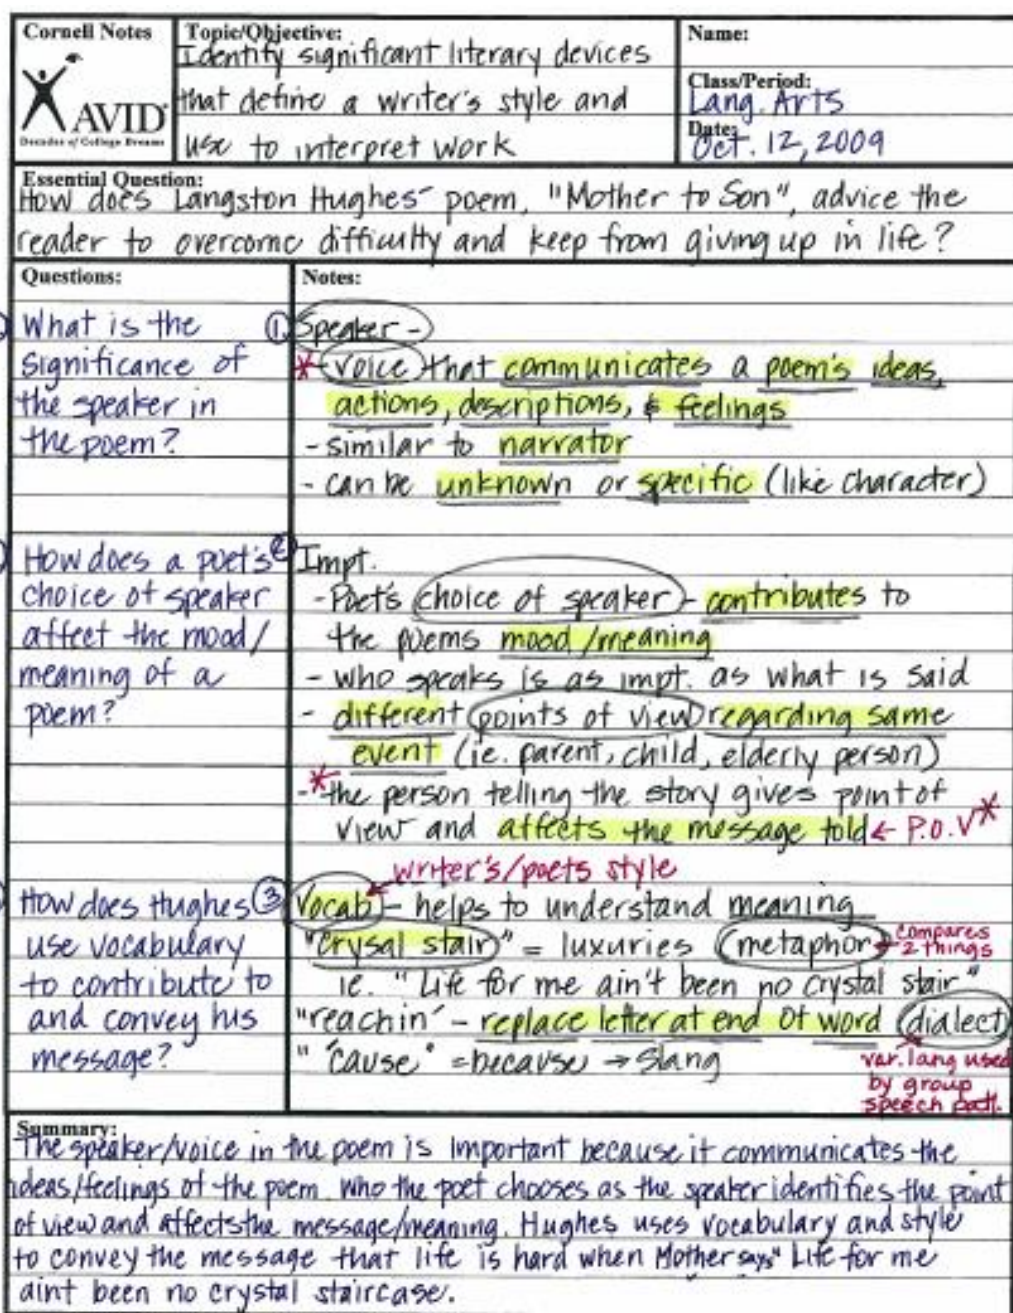 Cornell Notes
AVID
Decades of College Dreams
Topic/Objective:
Identify significant literary devices
that define a writer's style and
use to interpret work
Name:
Class/Period:
Lang. Arts
Date:
Oct. 12, 2009
Essential Question:
How does Langston Hughes' poem, "Mother to Son", advice the
reader to overcome difficulty and keep from giving up in life?
Questions:
What is the
significance of
the speaker in
the poem?
How does a poet's
choice of speaker
affect the mood/
meaning of a
poem?
How does Hughes
use vocabulary
to contribute to
and convey his
message?
Notes:
① Speaker -
* - voice that communicates a poem's ideas,
actions, descriptions, & feelings
- similar to narrator
- can be unknown or specific (like character)
② Impt.
- Poet's choice of speaker - contributes to
the poems mood/meaning
- who speaks is as impt. as what is said
- different points of view regarding same
event (ie. parent, child, elderly person)
- * the person telling the story gives point of
view and affects the message told ← P.O.V *
writer's/poets style
③ Vocab - helps to understand meaning
"crysal stair" = luxuries metaphor ← compares
2 things
ie. "Life for me ain't been no crystal stair"
"reachin' - replace letter at end of word dialect
" 'cause" = because → slang
var. lang used
by group
speech patt.
Summary:
The speaker/voice in the poem is important because it communicates the
ideas/feelings of the poem. Who the poet chooses as the speaker identifies the point
of view and affects the message/meaning. Hughes uses vocabulary and style
to convey the message that life is hard when Mother says "Life for me
aint been no crystal staircase.